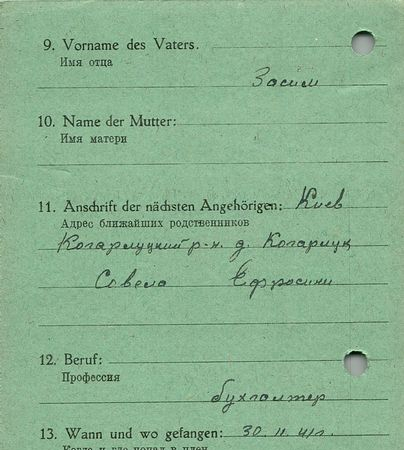 9. Vorname des Vaters.
Имя отца
Засим
10. Name der Mutter:
Имя матери
11. Anschrift der nächsten Angehörigen: Киев
Адрес ближайших родственников
Когарлуцкий р-н. д. Когарлук
Совела Ефросини
12. Beruf:
Профессия
бухгалтер
13. Wann und wo gefangen: 30. 11. 41г.
Когда и где попал в плен